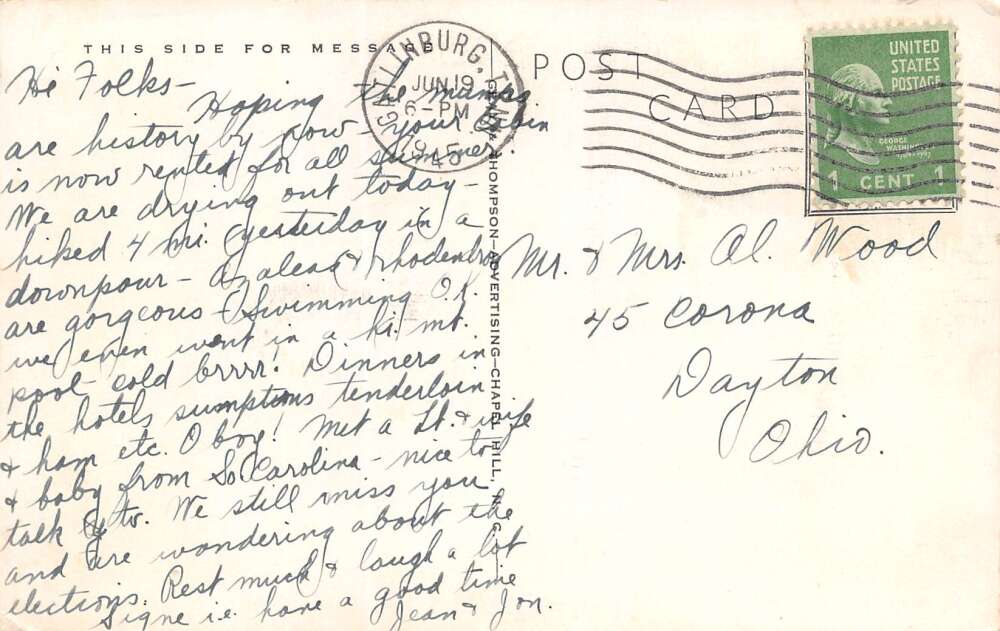 THIS SIDE FOR MESSAGE
Hi Folks-
Hoping the mumps
are history by now - your cabin
is now rented for all summer.
We are drying out today -
hiked 4 mi. yesterday in a
downpour - azaleas & rhodendro
are gorgeous - Swimming O.K.
we even went in a hi. mt.
pool cold brrrr. Dinners in
the hotels sumptous tenderloin
& ham etc. O boy! Met a Lt. & wife
& baby from So Carolina - nice to
talk to. We still miss you
and are wondering about the
elections. Rest much & laugh a lot
Signe i.e. have a good time
Jean & Jon.
GATLINBURG, TENN.
JUN 19
6-PM
1945
THOMPSON-ADVERTISING-CHAPEL HILL, N. C.
POST
CARD
UNITED
STATES
POSTAGE
GEORGE
WASHINGTON
1 CENT 1
Mr. & Mrs. Al. Wood
45 Corona
Dayton
Ohio.